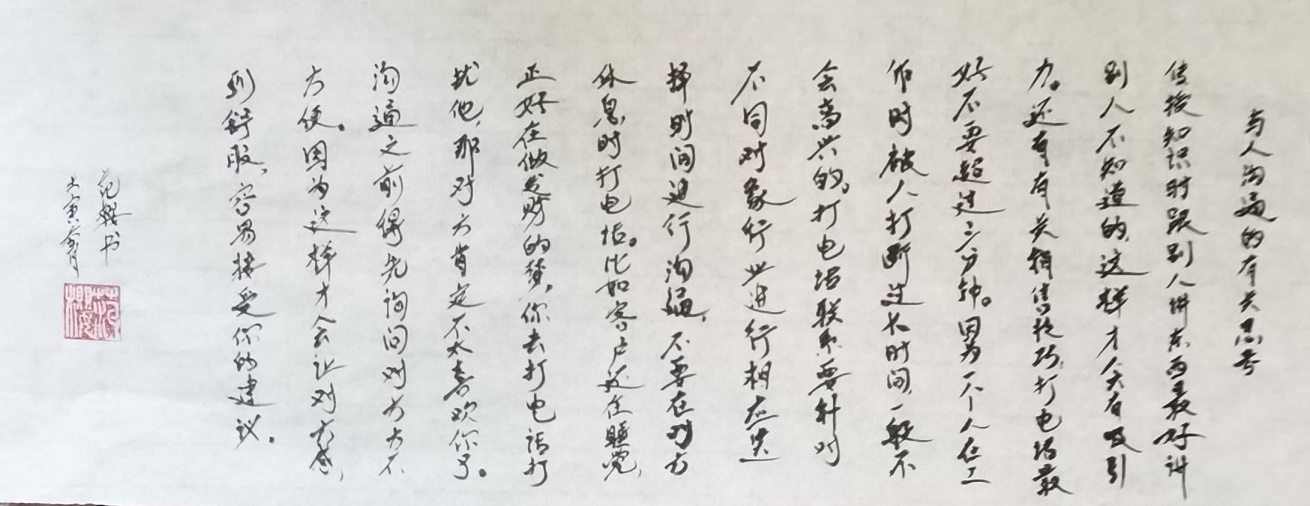 与人沟通的有关思考
传授知识时跟别人讲东西最好讲
别人不知道的，这样才会有吸引
力。还有有关销售技巧，打电话最
好不要超过三分钟。因为一个人在工
作时被人打断过长时间，一般不
会高兴的。打电话联系要针对
不同对象行业进行相应选
择时间进行沟通，不要在对方
休息时打电话。比如客户还在睡觉，
正好在做发财的梦，你去打电话打
扰他，那对方肯定不太喜欢你了。
沟通之前得先询问对方方不
方便。因为这样才会让对方感
到舒服，容易接受你的建议。
范樱书
壬寅